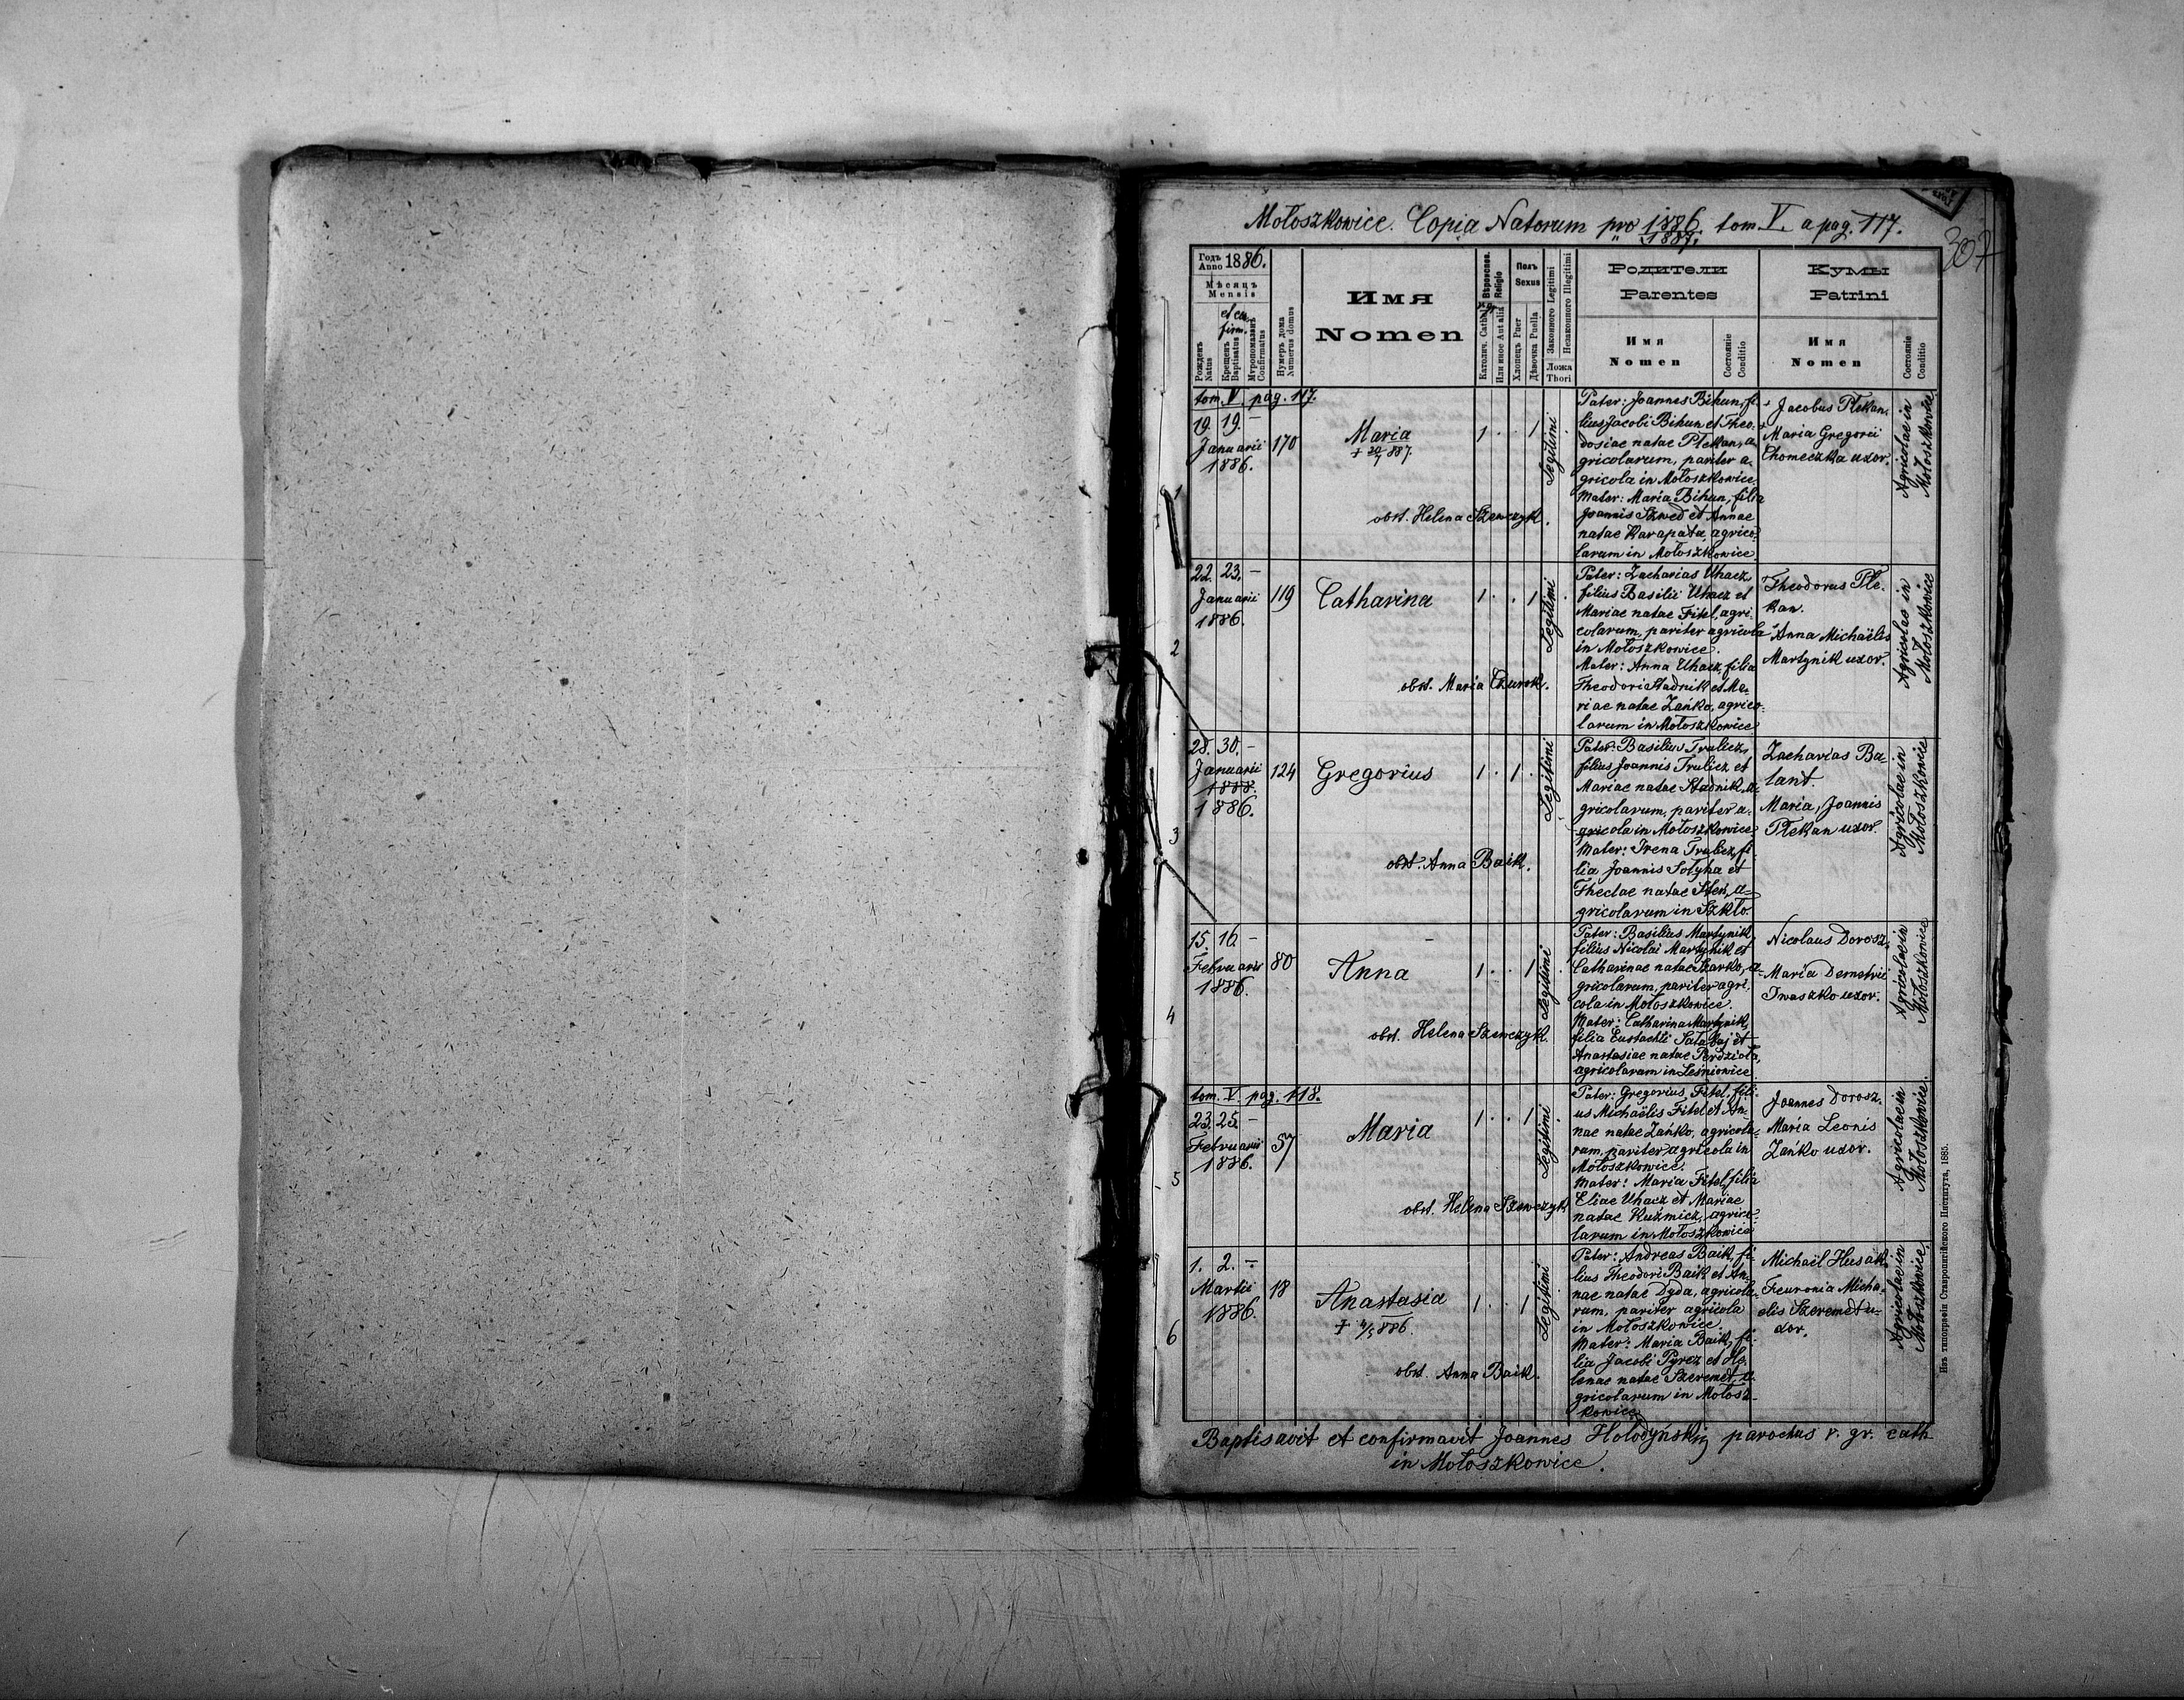 Mołoszkowice. Copia Natorum pro 1886. tom V. a pag. 117.
" 1887.
307
Годъ
Anno 1886.
Мѣсяцъ
Mensis
Рожденъ
Natus
Крещенъ
Baptisatus
et con
firm.
Мvропомазанъ
Confirmatus
Нумеръ дома
Numerus domus
Имя
Nomen
Вѣроисповѣд.
Religio
Католич. Cathol.
Или иное Aut alia
Полъ
Sexus
Хлопецъ Puer
Дѣвочка Puella
Законного Legitimi
Незаконного Illegitimi
Ложа
Thori
Родители
Parentes
Имя
Nomen
Состояніе
Conditio
Кумы
Patrini
Имя
Nomen
Состояніе
Conditio
tom. V. pag. 117.
1
19. 19. –
Januarii
1886.
170
Maria
obst. Helena Szewczyk.
1 . . 1 .
Legitimi
Pater: Joannes Bihun, fi-
lius Jacobi Bihun et Theo-
dosiae natae Plekan, a-
gricolarum, pariter a-
gricola in Mołoszkowice.
Mater: Maria Bihun, filia
Joannis Szwed et Annae
natae Karapata, agrico-
larum in Mołoszkowice
Jacobus Plekan.
Maria Gregorii
Chomeczka uxor.
Agricolae in
Mołoszkowice.
2
22. 23. –
Januarii
1886.
119
Catharina
obst. Maria
1 . . 1 .
Legitimi
Pater: Zacharias Uhacz,
filius Basilii Uhacz et
Mariae natae Fitel, agri
colarum, pariter agricola
in Mołoszkowice.
Mater: Anna Uhacz, filia
Theodori Stadnik et Ma-
riae natae Zańko, agrico-
larum in Mołoszkowice
Theodorus Ple-
kan.
Anna Michaëlis
Martynik uxor.
Agricolae in
Mołoszkowice
3
28. 30. –
Januarii
1888.
1886.
124
Gregorius
obst. Anna Baik.
1 . 1 .
Legitimi
Pater: Basilius Trulicz,
filius Joannis Trulicz et
Mariae natae Stadnik, a-
gricolarum, pariter a-
gricola in Mołoszkowice.
Mater: Irena Trulicz, fi-
lia Joannis Sołyha et
Theclae natae Sten, a-
gricolarum in Szkło.
Zacharias Ba-
lant.
Maria, Joannis
Plekan uxor.
Agricolae in
Mołoszkowice
4
15. 16 –
Februarii
1886.
80
Anna
obst. Helena Szewczyk.
1 . . 1 .
Legitimi
Pater: Basilius Martynik,
filius Nicolai Martynik et
Catharinae natae Szarko, a-
gricolarum, pariter agri-
cola in Mołoszkowice.
Mater: Catharina Martynik,
filia Eustachii et
Anastasiae natae Perdzioła,
agricolarum in Leśniowice
Nicolaus Dorosz.
Maria Demetrii
Iwaszko uxor.
Agricolae in
Mołoszkowice
tom. V. pag. 118.
5
23. 25. –
Februarii
1886.
57
Maria
obst. Helena Szewczyk
1 . . 1 .
Legitimi
Pater: Gregorius Fitel, fili-
us Michaëlis Fitel et An-
nae natae Zańko, agricola-
rum, pariter agricola in
Mołoszkowice.
Mater: Maria Fitel, filia
Eliae Uhacz et Mariae
natae Kuźmicz, agrico-
larum in Mołoszkowice
Joannes Dorosz.
Maria Leonis
Zańko uxor.
Agricolae in
Mołoszkowice.
6
1. 2. –
Martii
1886.
18
Anastasia
obst. Anna Baik.
1 . . 1
Legitimi
Pater: Andreas Baik, fi-
lius Theodori Baik et An-
nae natae Dyda, agricola-
rum, pariter agricola
in Mołoszkowice.
Mater: Maria Baik, fi-
lia Jacobi Pyrcz et He-
lenae natae Szeremet, a-
gricolarum in Mołosz-
kowice
Michaël Husak.
Feuronia Micha-
elis Szeremet u-
xor.
Agricolae in
Mołoszkowice.
Baptisavit et confirmavit Joannes Hołodyńskij parochus r. gr. cath
in Mołoszkowice.
Изъ типографіи Ставропигійского Института, 1885.